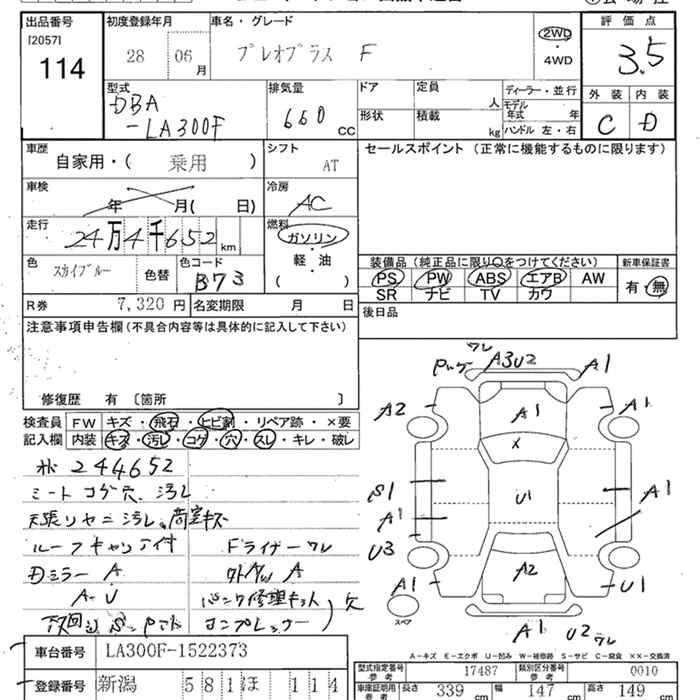 出品番号
[2057]
114
初度登録年月
28 06月
車名・グレード
プレオプラス F
2WD
・
4WD
評価点
3.5
外装 内装
C D
型式
DBA
-LA300F
排気量
660 CC
ドア 定員 人
形状 積載 kg
ディーラー・並行
モデル年式 年
ハンドル 左・右
車歴
自家用・( 乗用 )
シフト
AT
セールスポイント (正常に機能するものに限ります)
車検
年 月( 日)
冷房
AC
走行
24万4千652 km
燃料
ガソリン
・
軽・油
( )
色
スカイブルー
色替
色コード
B73
装備品 (純正品に限り○をつけてください)
PS PW ABS エアB AW
SR ナビ TV カワ
新車保証書
有・無
R券 7,320 円
名変期限 月 日
後日品
注意事項申告欄(不具合内容等は具体的に記入して下さい)
修復歴 有 〔箇所 〕
検査員記入欄
FW キズ・飛石・ヒビ割・リペア跡・×要
内装 キズ・汚レ・コゲ・穴・スレ・キレ・破レ
244652
シートコゲ穴、汚レ
天張リヤニ汚レ、荷室キズ
ルーフキャリア付
Fライナーワレ
Dミラー A
A-U
パンク修理キット
コンプレッサー) 欠
ワレ
A3U2
A1
A2
A1
A1
S1
U1
A1
A1
U3
A2
A1
U1
スペア
A1
U2ワレ
A-キズ E-エクボ U-凹み W-補修跡 S-サビ C-腐食 ××-交換済
車台番号
LA300F-1522373
登録番号
新潟 581 ほ 114
型式指定番号 参考 17487
類別区分番号 参考 0010
車庫証明用 参考 長さ 339 cm 幅 147 cm 高さ 149 cm